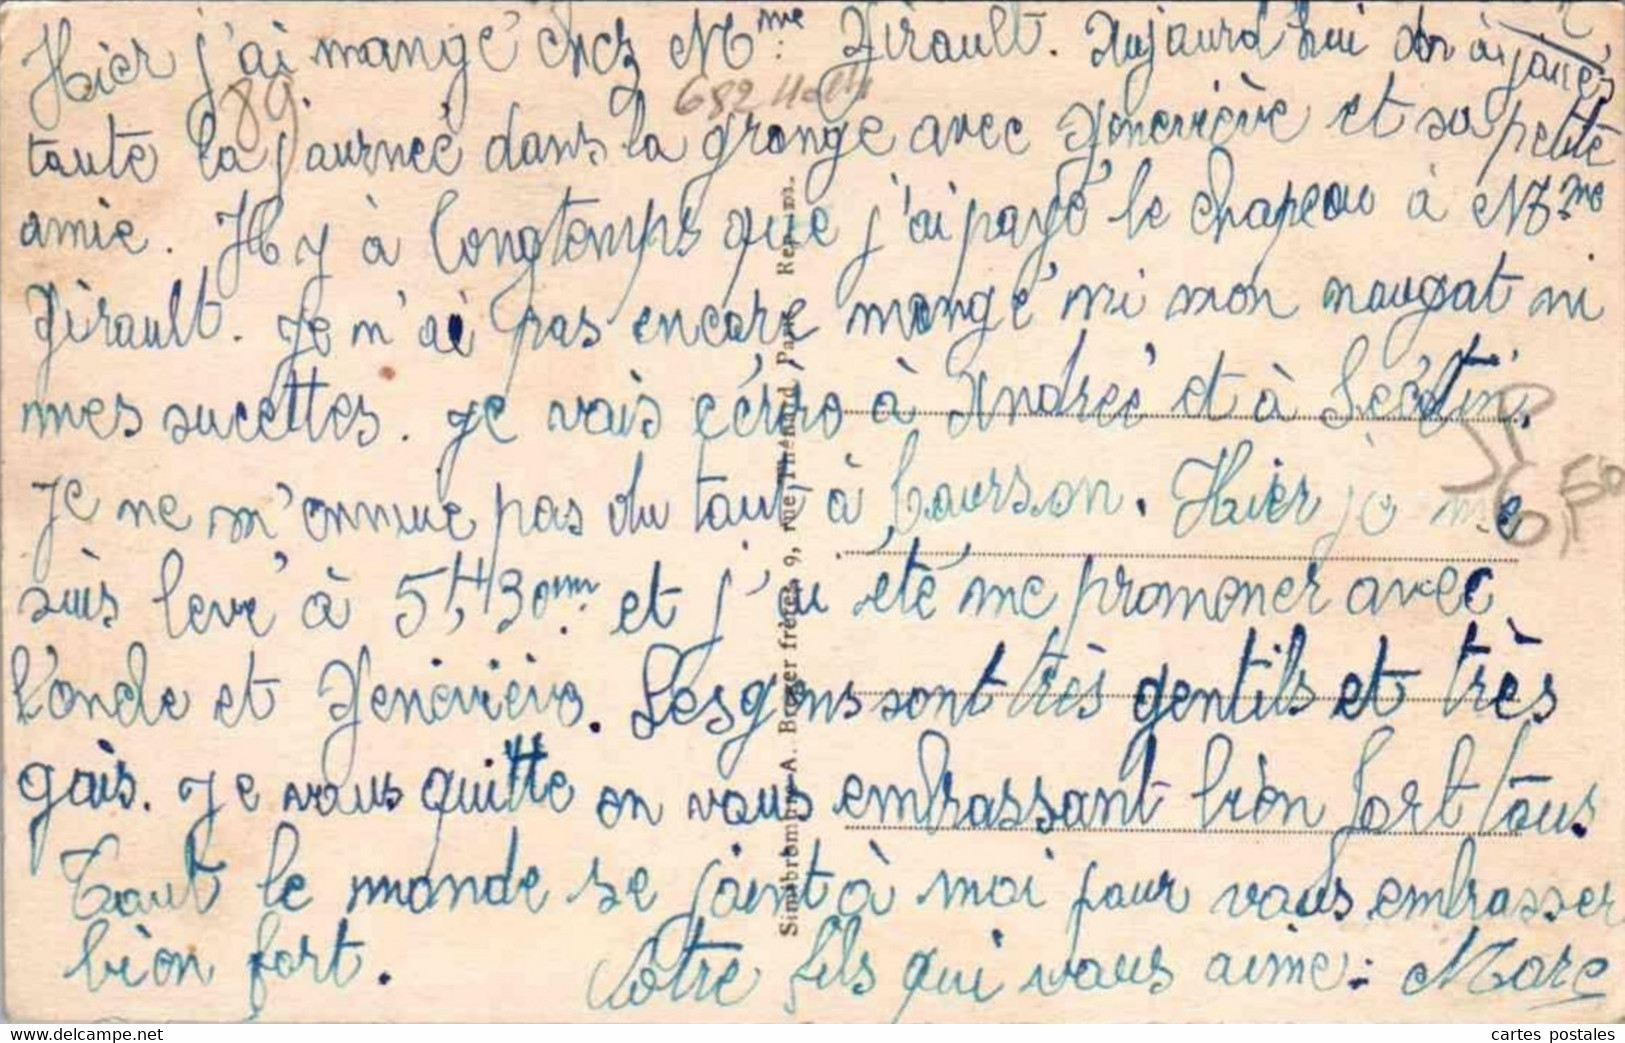 Hier j'ai mangé chez Mme Girault. Aujourd'hui on à joués
toute la journeé dans la grange avec Geneviève et sa petite
amie. Il y à longtemps que j'ai payé le chapeau à Mme
Girault. Je n'ai pas encore mangé ni mon nougat ni
mes sucettes. Je vais écrire à Andreé et à
Je ne m'ennuie pas du tout à Courson. Hier je me
suis levé à 5H30m. et j'ai été me promener avec
l'oncle et Geneviève. Les gens sont très gentils et très
gais. Je vous quitte en vous embrassant bien fort tous.
Tout le monde se joint à moi pour vous embrasser
bien fort. Votre fils qui vous aime: Marc
89
50
Simi-bromure A. Breger frères 9, rue Thénard, Paris. Rep. int.
cartes postales